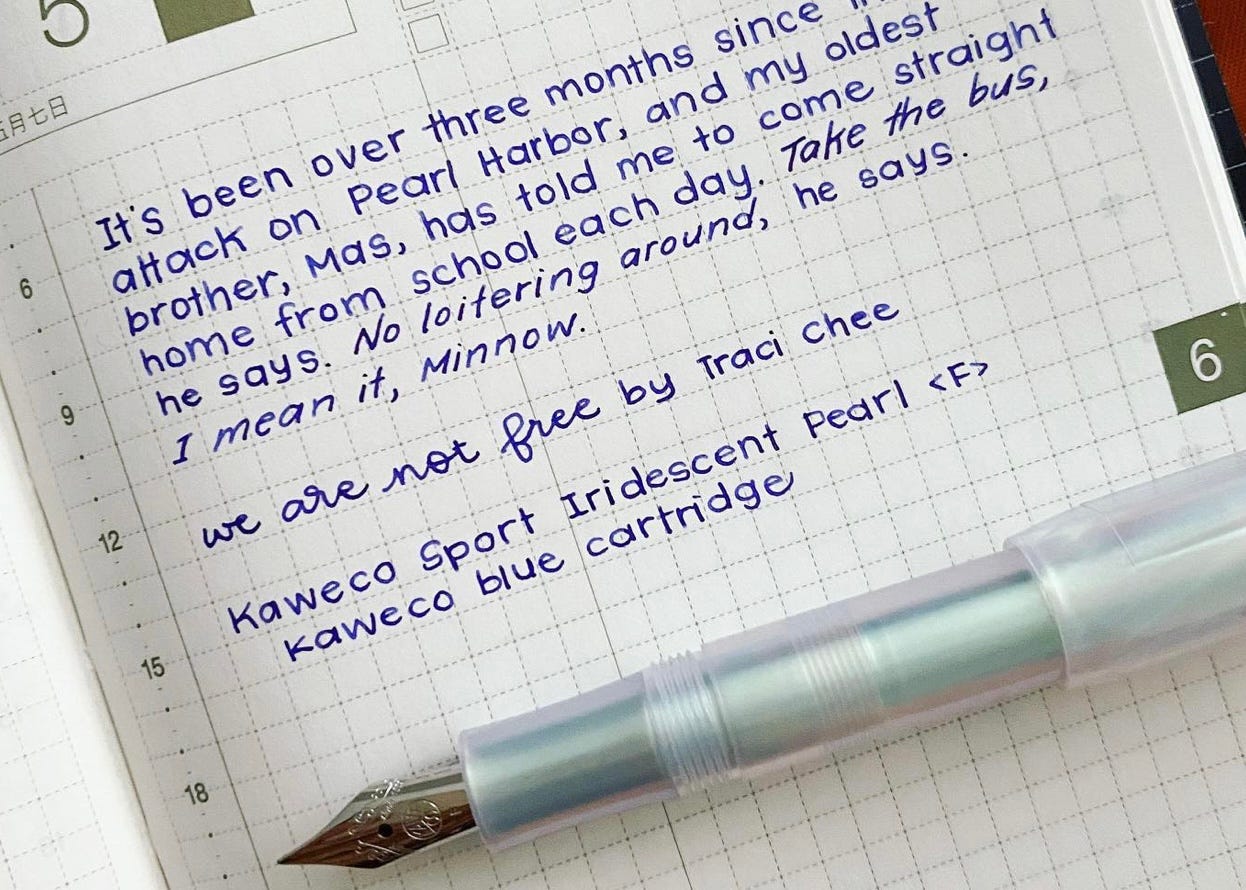 5
月七日
It's been over three months since
attack on Pearl Harbor, and my oldest
brother, Mas, has told me to come straight
home from school each day. Take the bus,
he says. No loitering around, he says.
I mean it, Minnow.
we are not free by Traci Chee
Kaweco Sport Iridescent Pearl <F>
Kaweco blue cartridge
6
9
12
15
18
6